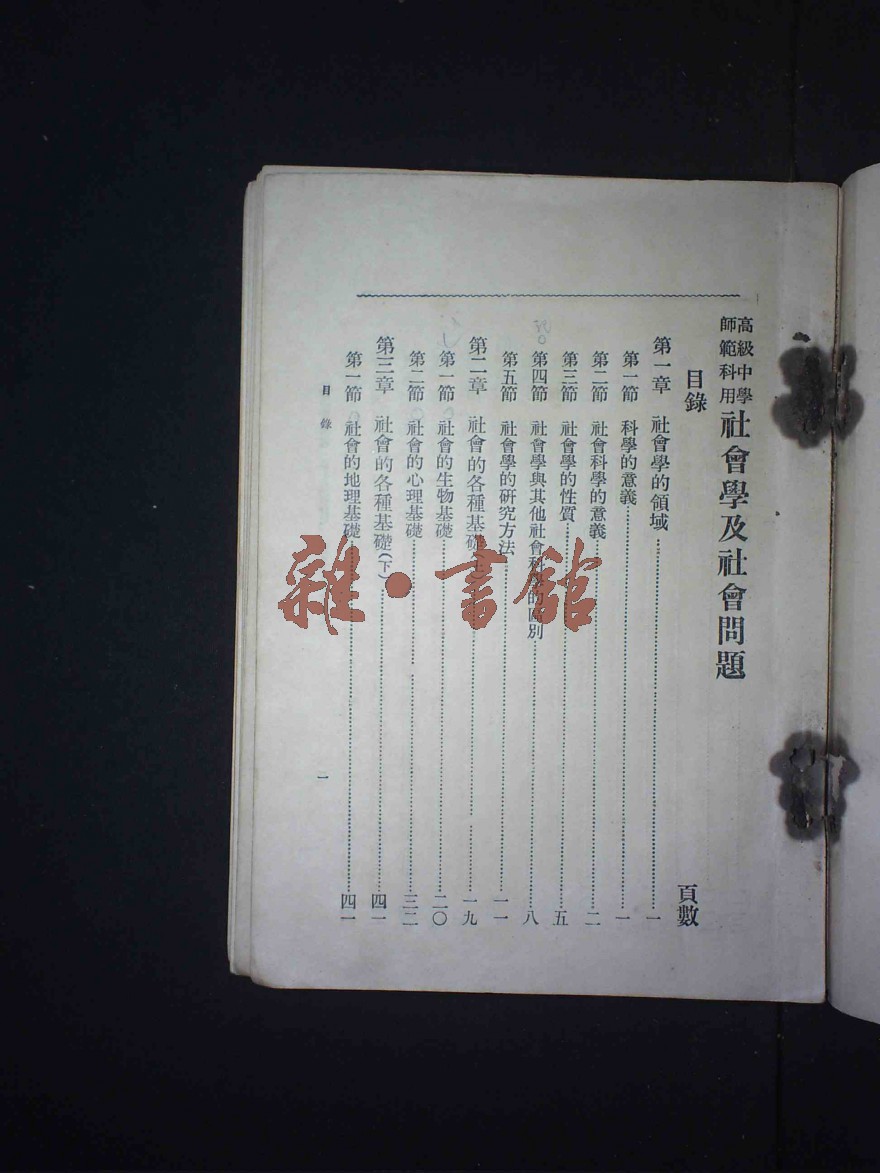 高級中學
師範科用
社會學及社會問題
目錄
頁數
第一章 社會學的領域……一
第一節 科學的意義……一
第二節 社會科學的意義……二
第三節 社會學的性質……五
第四節 社會學與其他社會科學的區別……八
第五節 社會學的研究方法……一一
第二章 社會的各種基礎(上)……一九
第一節 社會的生物基礎……二〇
第二節 社會的心理基礎……三二
第三章 社會的各種基礎(下)……四一
第一節 社會的地理基礎……四一
目錄
一
雜·書館